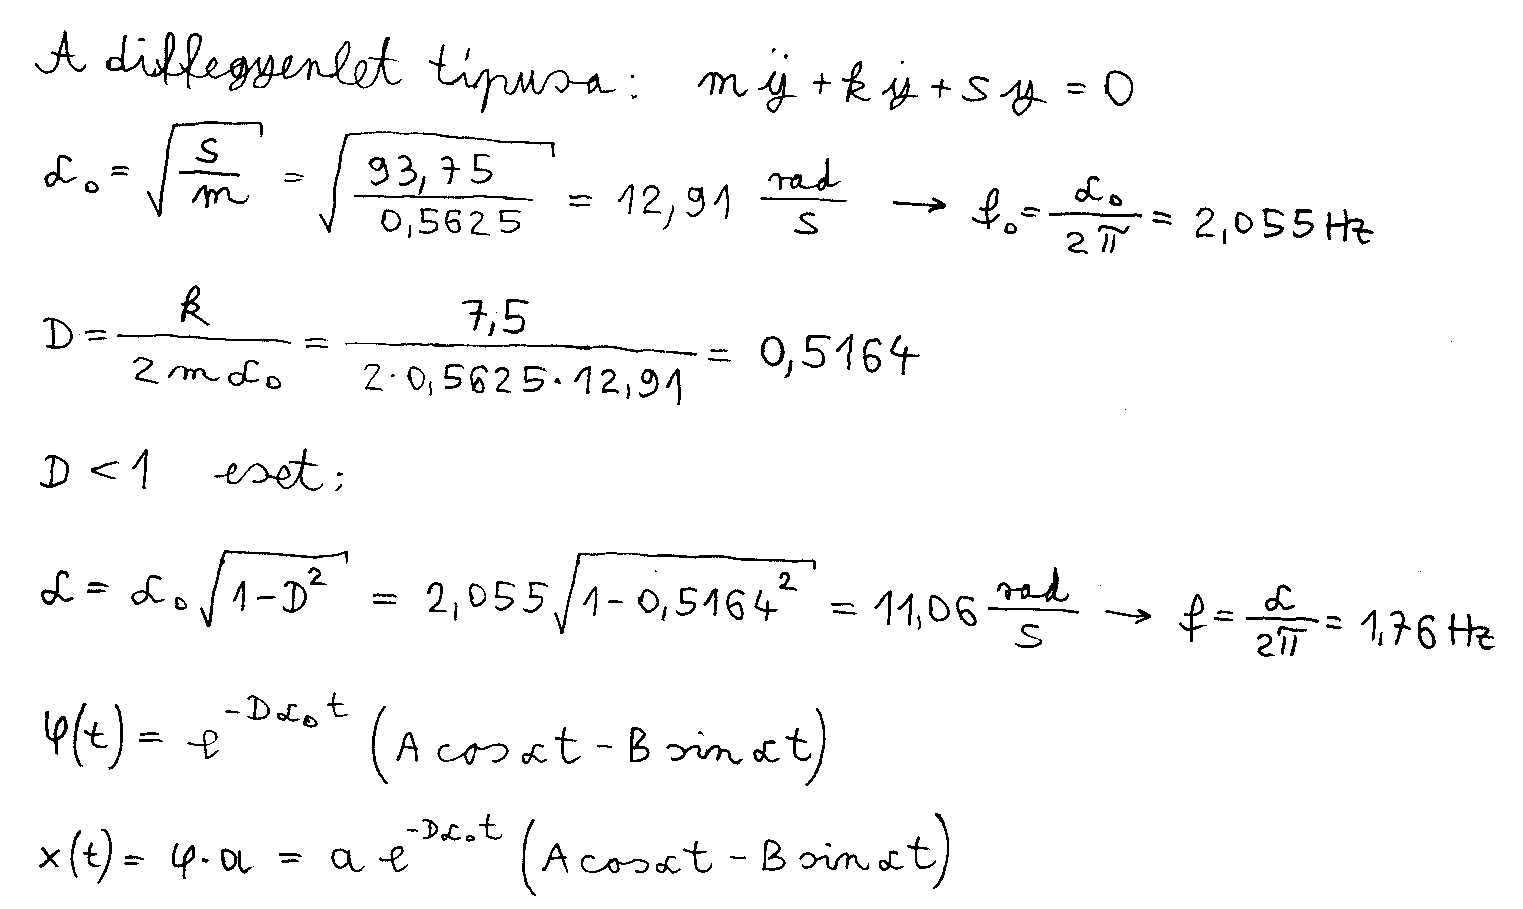 A diffegyenlet típusa: mÿ + kẏ + sy = 0
α₀ = √(s/m) = √(93,75/0,5625) = 12,91 rad/s → f₀ = α₀/2π = 2,055 Hz
D = k/(2mα₀) = 7,5/(2·0,5625·12,91) = 0,5164
D < 1 eset:
α = α₀√(1-D²) = 2,055√(1-0,5164²) = 11,06 rad/s → f = α/2π = 1,76 Hz
φ(t) = e^(-Dα₀t) (A cos αt - B sin αt)
x(t) = φ·a = a e^(-Dα₀t) (A cos αt - B sin αt)